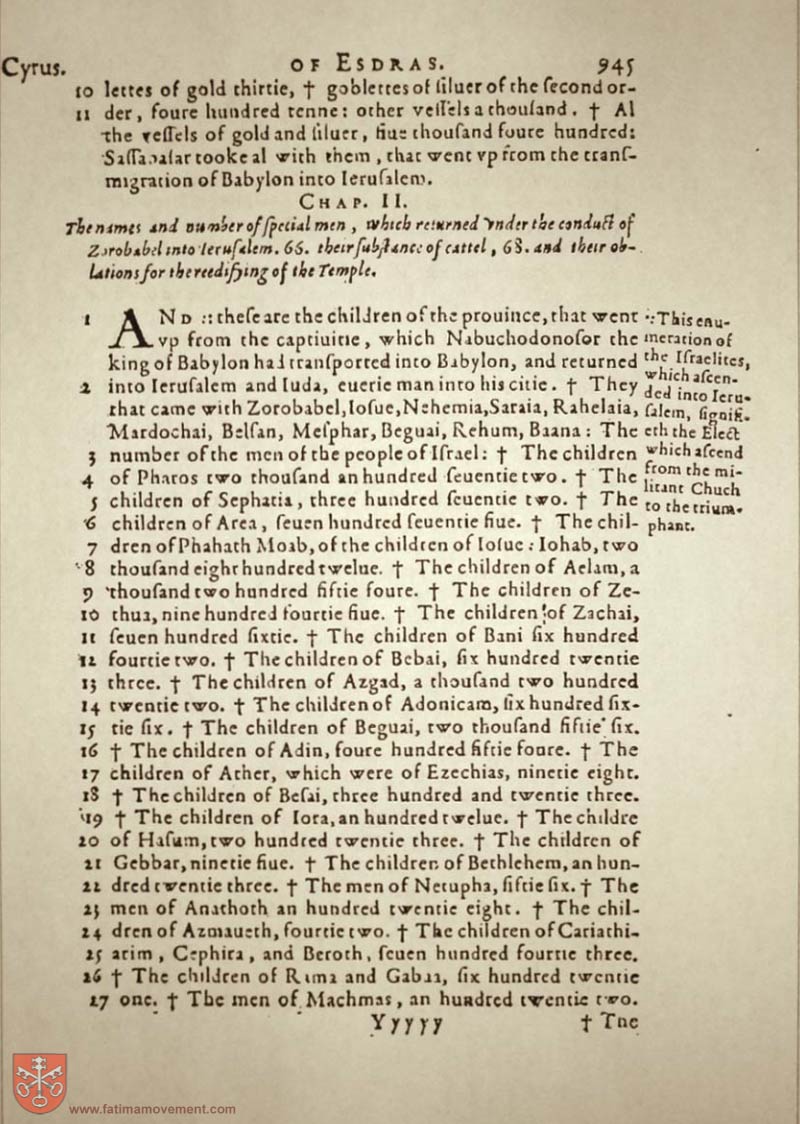 Cyrus. OF ESDRAS. 945
10 lettes of gold thirtie, † goblettes of ſiluer of the ſecond or-
11 der, foure hundred tenne: other veſſels a thouſand. † Al
the veſſels of gold and ſiluer, fiue thouſand foure hundred:
Saſſabaſar tooke al with them, that went vp from the tranſ-
migration of Babylon into Ieruſalem.
CHAP. II.
The names and number of ſpecial men, which returned vnder the conduct of
Zorobabel into Ieruſalem. 66. their ſubſtance of cattel, 68. and their ob-
lations for the reedifying of the Temple.
1 AND :: theſe are the children of the prouince, that went
vp from the captiuitie, which Nabuchodonoſor the
king of Babylon had tranſported into Babylon, and returned
2 into Ieruſalem and Iuda, euerie man into his citie. † They
that came with Zorobabel, Ioſue, Nehemia, Saraia, Rahelaia,
Mardochai, Belſan, Meſphar, Beguai, Rehum, Baana: The
3 number of the men of the people of Iſrael: † The children
4 of Pharos two thouſand an hundred ſeuentie two. † The
5 children of Sephatia, three hundred ſeuentie two. † The
6 children of Area, ſeuen hundred ſeuentie fiue. † The chil-
7 dren of Phahath Moab, of the children of Ioſue: Iohab, two
8 thouſand eight hundred twelue. † The children of Aelam, a
9 thouſand two hundred fiftie foure. † The children of Ze-
10 thua, nine hundred fourtie fiue. † The children of Zachai,
11 ſeuen hundred ſixtie. † The children of Bani ſix hundred
12 fourtie two. † The children of Bebai, ſix hundred twentie
13 three. † The children of Azgad, a thouſand two hundred
14 twentie two. † The children of Adonicam, ſix hundred ſix-
15 tie ſix. † The children of Beguai, two thouſand fiftie ſix.
16 † The children of Adin, foure hundred fiftie foure. † The
17 children of Ather, which were of Ezechias, ninetie eight.
18 † The children of Beſai, three hundred and twentie three.
19 † The children of Iora, an hundred twelue. † The childrẽ
20 of Haſum, two hundred twentie three. † The children of
21 Gebbar, ninetie fiue. † The children of Bethlehem, an hun-
22 dred twentie three. † The men of Netupha, fiftie ſix. † The
23 men of Anathoth an hundred twentie eight. † The chil-
24 dren of Azmaueth, fourtie two. † The children of Cariathi-
25 arim, Cephira, and Beroth, ſeuen hundred fourtie three.
26 † The children of Rama and Gabaa, ſix hundred twentie
27 one. † The men of Machmas, an hundred twentie two.
Yyyyy † The
:: This enu-
meration of
the Iſraelites,
which aſcen-
ded into Ieru-
ſalem, ſignifi-
eth the Elect
which aſcend
from the mi-
litant Chuch
to the trium-
phant.
www.fatimamovement.com